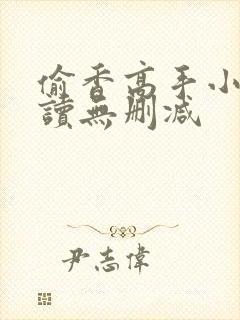 偷香高手小
讀無刪減
尹志偉